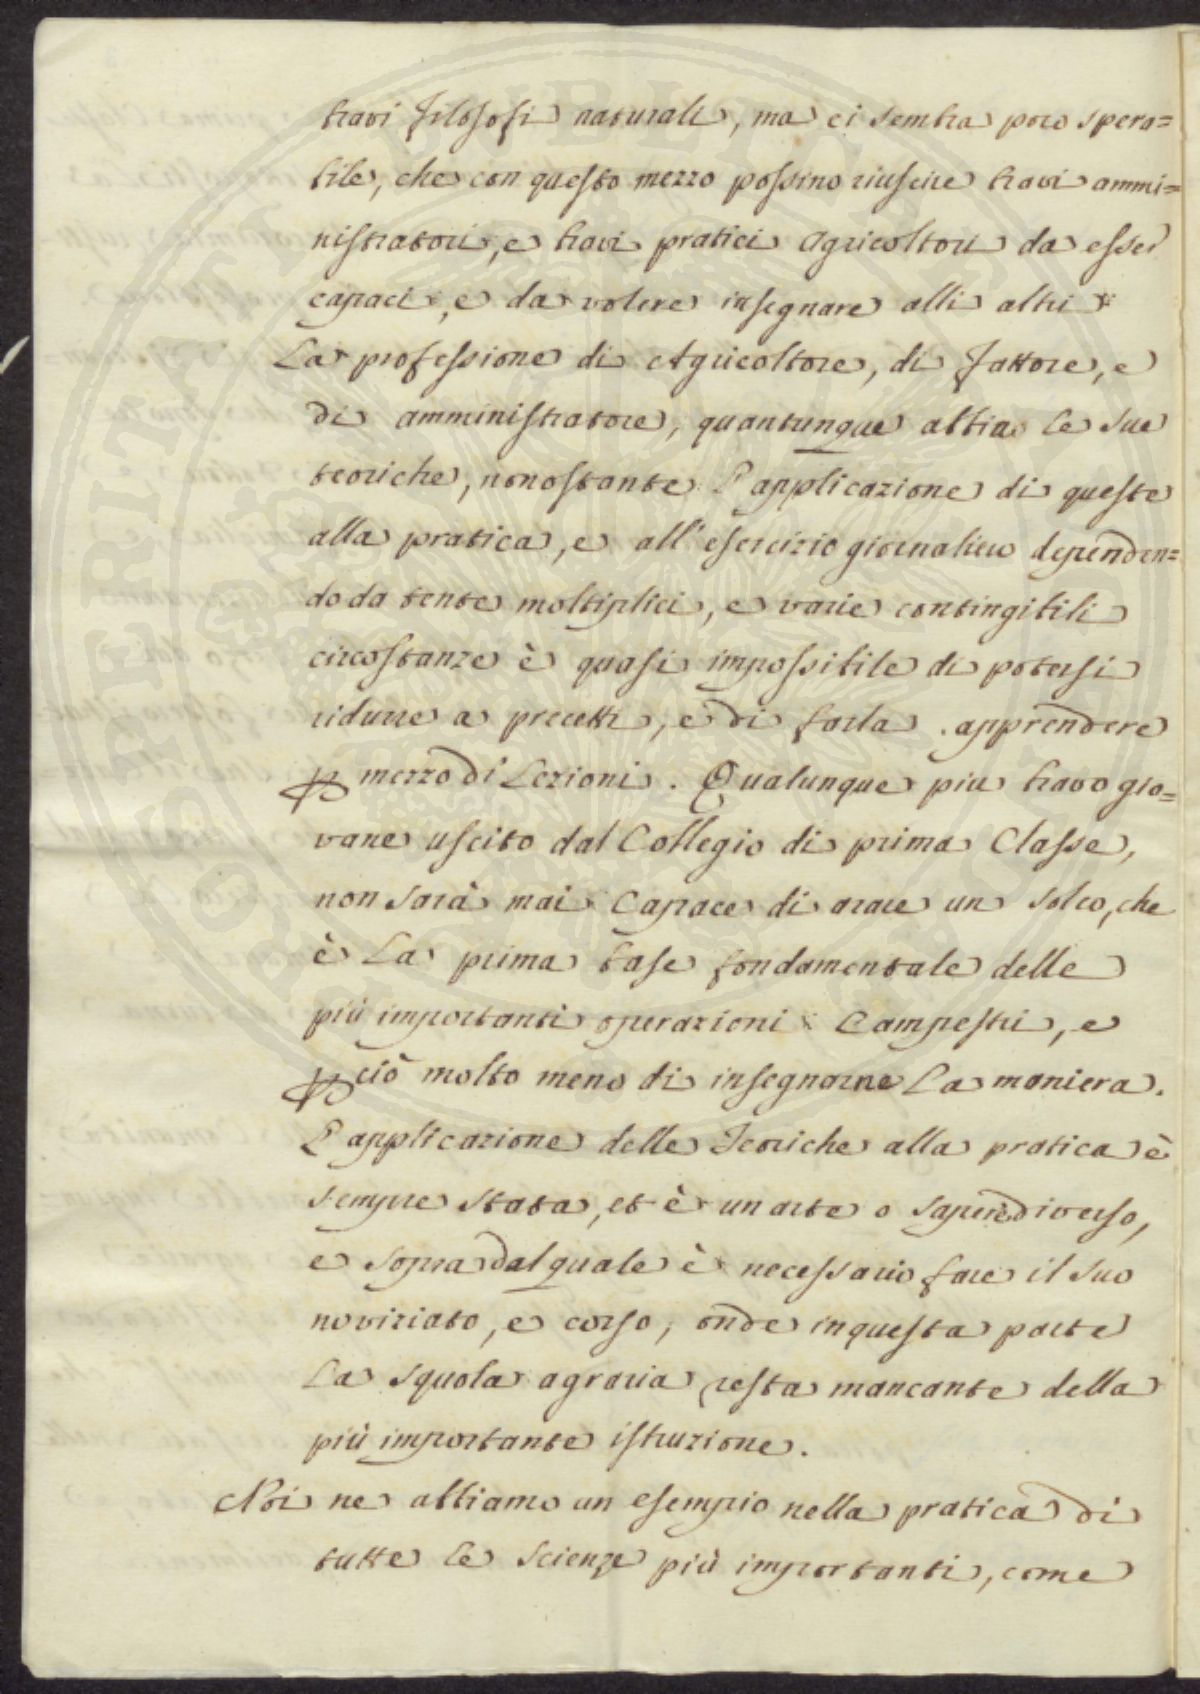 bravi filosofi naturali, ma ci sembra poco spera=
bile, che con questo mezzo possino riuscire bravi ammi=
nistratori, e bravi pratici Agricoltori da esser
capaci, e da volere insegnare alli altri
La professione di Agricoltore, di Fattore, e
di amministratore, quantunque abbia le sue
teoriche, nonostante l'applicazione di queste
alla pratica, e all'esercizio giornaliero dependen=
do da tente moltiplici, e varie contingibili
circostanze è quasi impossibile di potersi
ridurre a precetti, e di farla apprendere
p mezzo di Lezioni. Qualunque piu bravo gio=
vane uscito dal Collegio di prima Classe,
non sarà mai Capace di arare un solco, che
è La prima base fondamentale delle
più importanti operazioni Campestri, e
p ciò molto meno di insegnarne La maniera.
L'applicazione delle Teoriche alla pratica è
sempre stata, et è un arte o saper diverso,
e sopra dal quale è necessario fare il suo
noviziato, e corso, onde in questa parte
La squola agraria resta mancante della
più importante istruzione.
Noi ne abbiamo un esempio nella pratica di
tutte le Scienze più importanti, come
PROSPERITATI PUBLICAE